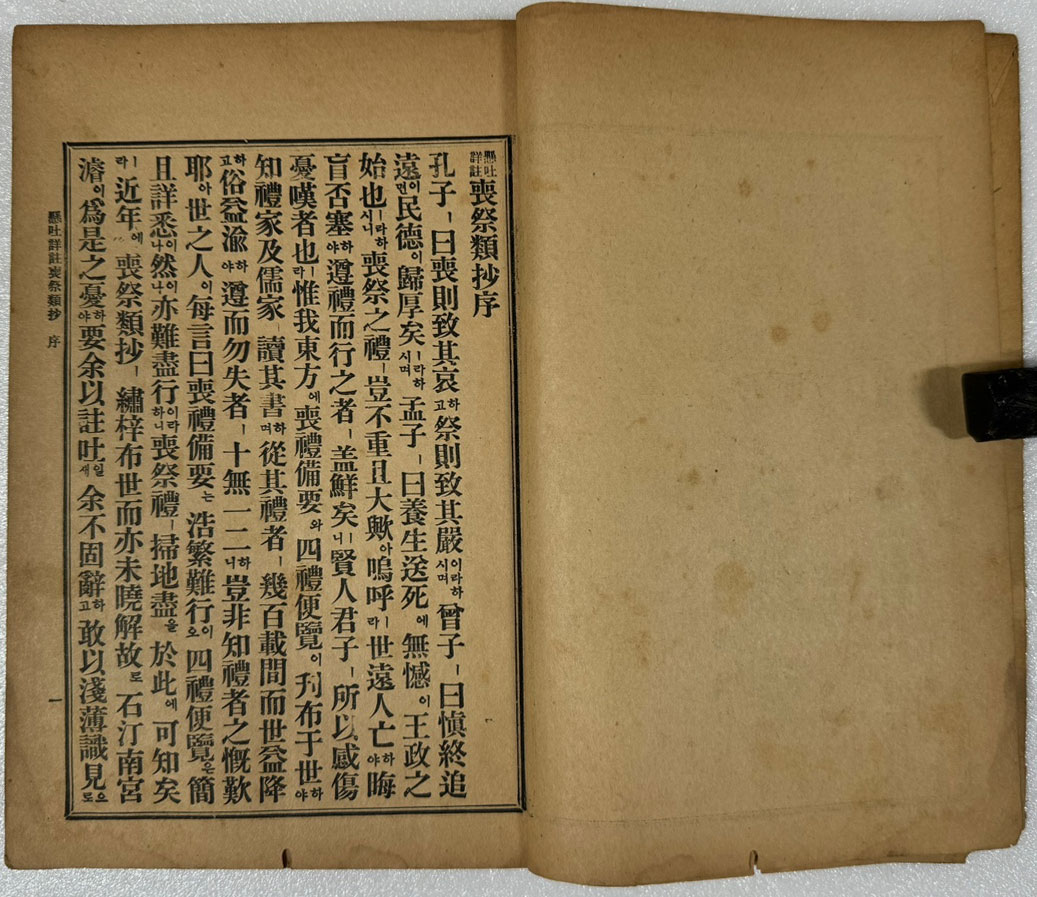 懸吐詳註喪祭類抄序
孔子ㅣ曰喪則致其哀하고祭則致其嚴이라하시며曾子ㅣ曰愼終追
遠이면民德이歸厚矣ㅣ라하시며孟子ㅣ曰養生送死에無憾이王政之
始也ㅣ라하시니喪祭之禮ㅣ豈不重且大歟아嗚呼ㅣ라世遠人亡하야晦
盲否塞하야遵禮而行之者ㅣ盖鮮矣ㅣ니賢人君子ㅣ所以感傷
憂嘆者也ㅣ라惟我東方에喪禮備要와四禮便覽이刋布于世하야
知禮家及儒家ㅣ讀其書하며從其禮者ㅣ幾百載間而世益降
하고俗益渝하야遵而勿失者ㅣ十無一二하니豈非知禮者之慨歎
耶아世之人이每言曰喪禮備要는浩繁難行이오四禮便覽은簡
且詳悉이나然이나亦難盡行이라하니喪祭禮ㅣ掃地盡을於此에可知矣
ㅣ라近年에喪祭類抄ㅣ繡梓布世而亦未曉解故로石汀南宮
濬이爲是之憂하야要余以註吐일새余不固辭하고敢以淺薄識見으로
懸吐詳註喪祭類抄 序
一